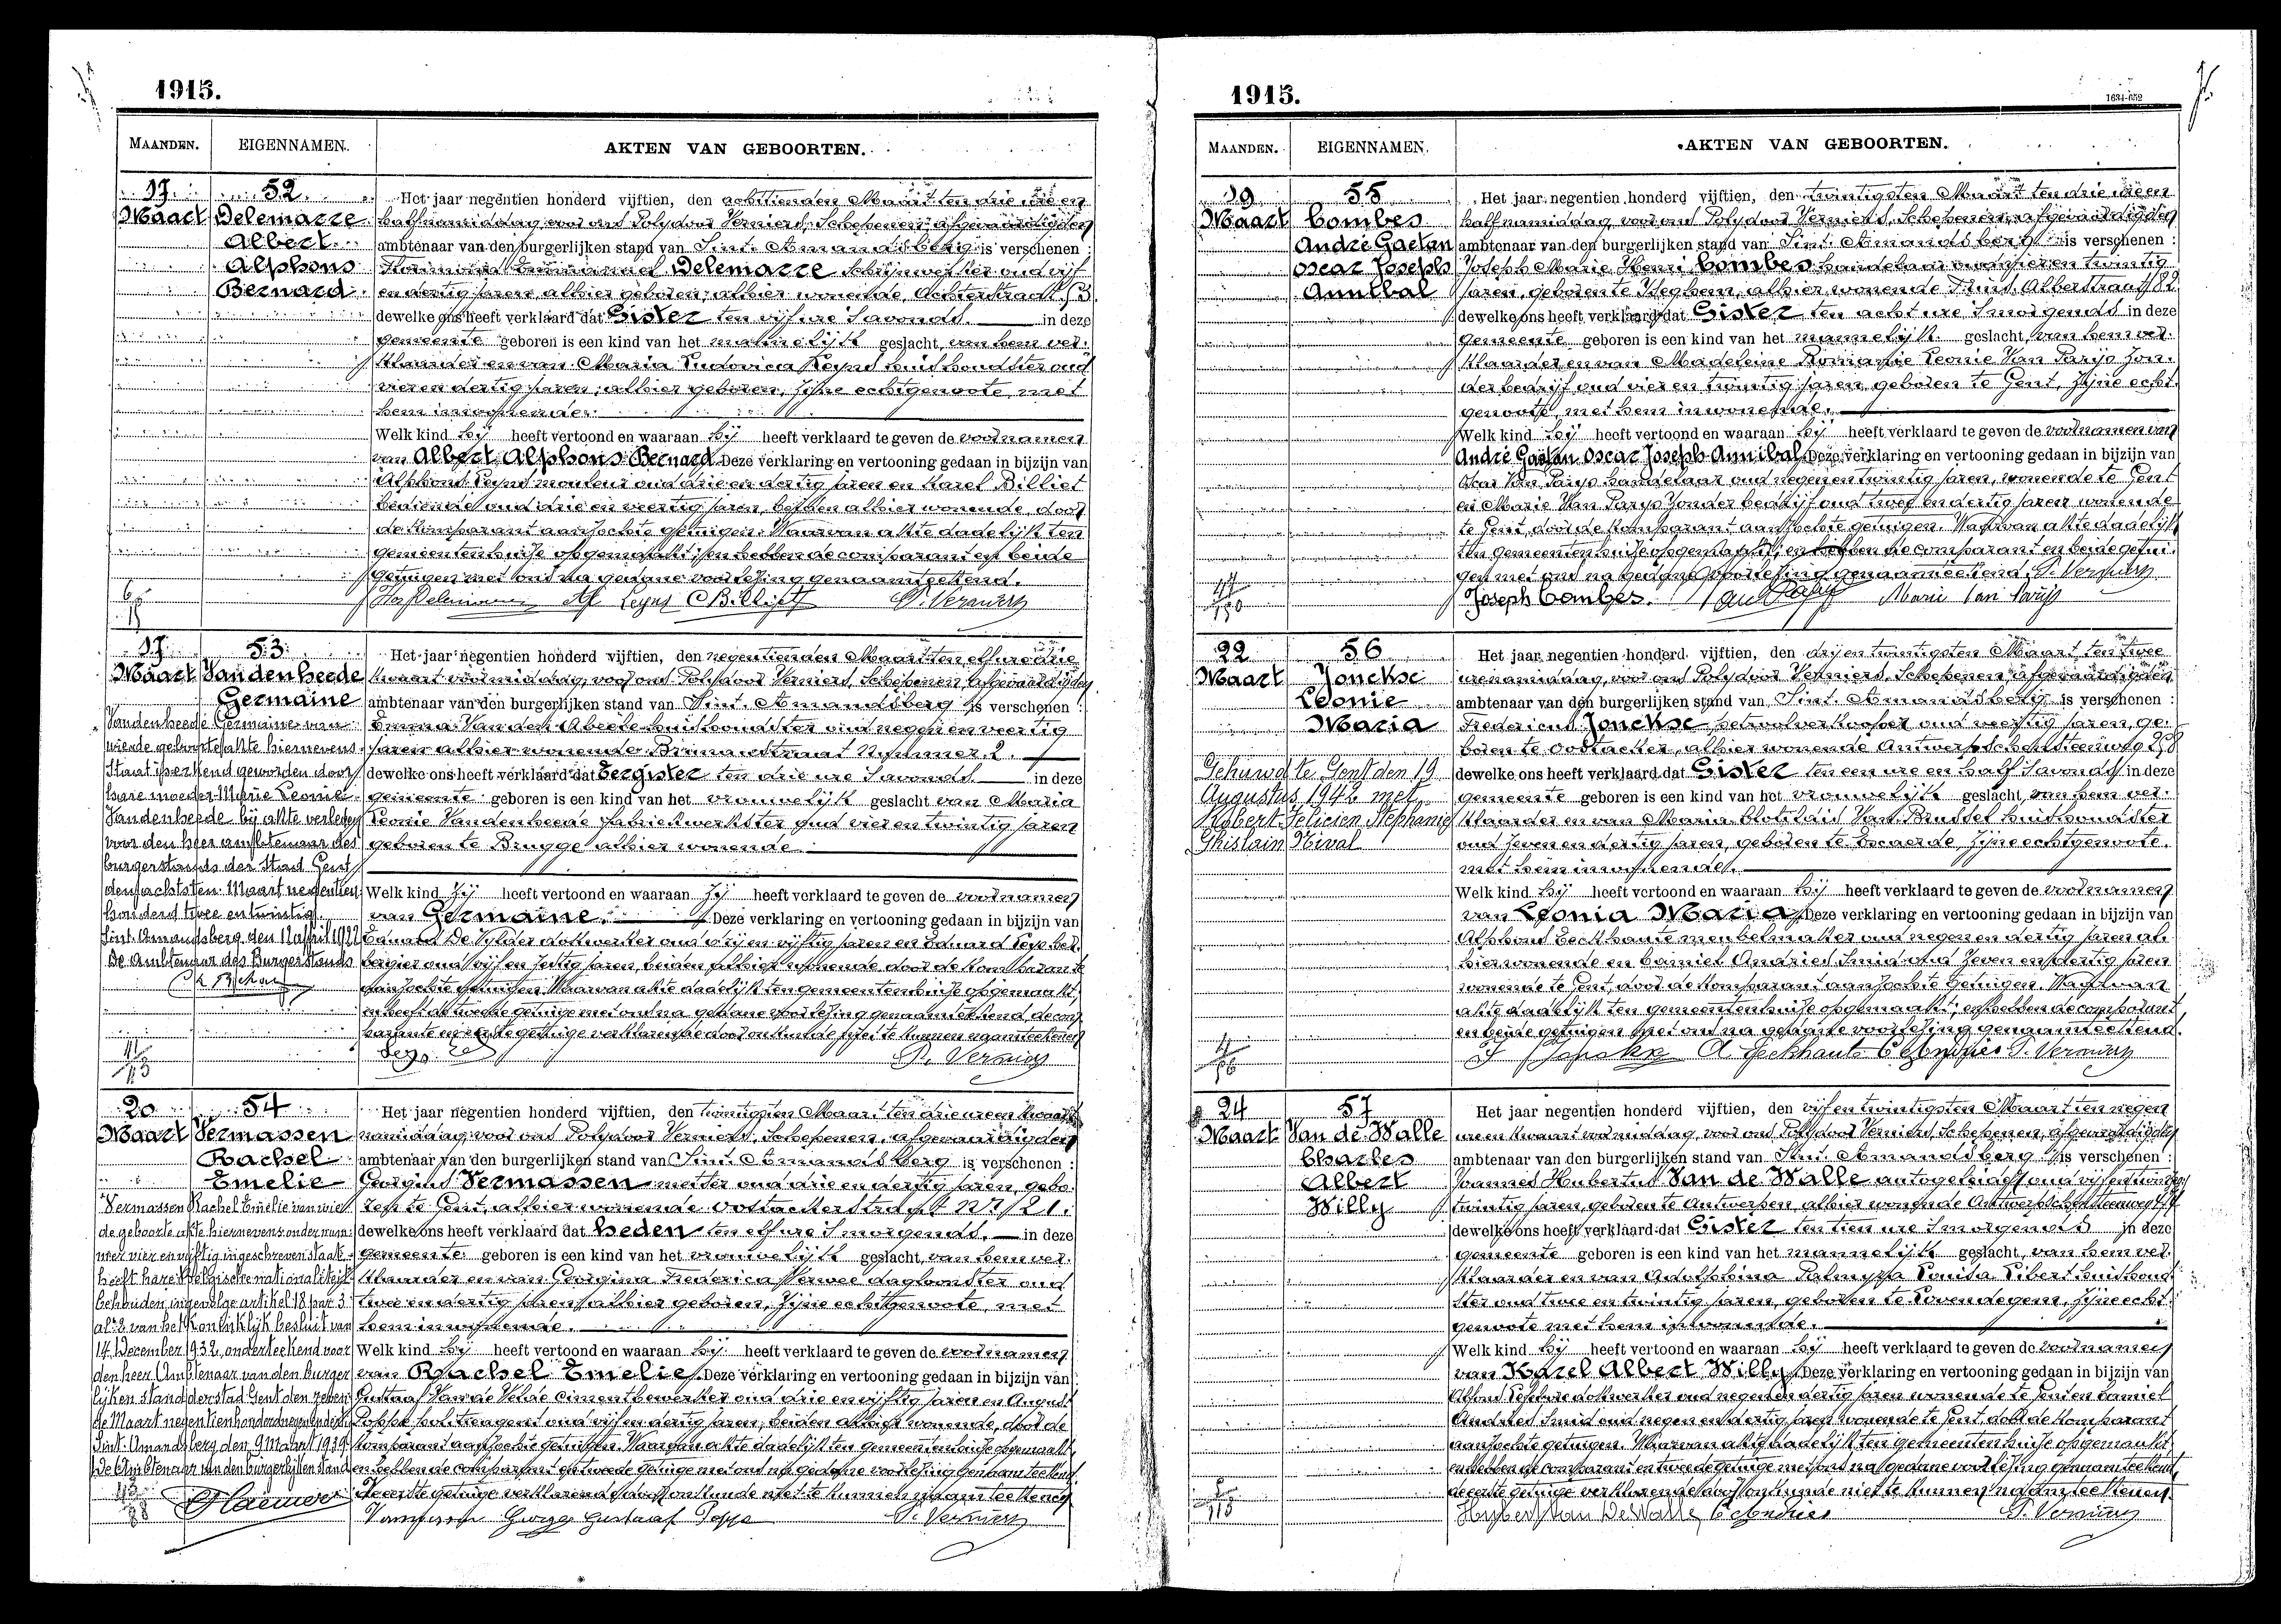 1915.
MAANDEN. EIGENNAMEN. AKTEN VAN GEBOORTEN.
17 Maart
52
Delemarre
Albert
Alphons
Bernard
Het jaar negentien honderd vijftien, den achttienden Maart ten drie ure en
half namiddag, voor ons Polydoor Verniers, Schepenen, afgevaardigden
ambtenaar van den burgerlijken stand van Sint. Amandsberg is verschenen :
Delemarre Schrijnwerker oud vijf
en dertig jaren, alhier geboren, alhier wonende, Achterstraat 53
dewelke ons heeft verklaard dat Gister ten vijf ure s'avonds in deze
gemeente geboren is een kind van het mannelijk geslacht, van hem ver-
klaarder en van Maria Ludovica Leyns huishoudster oud
vier en dertig jaren, alhier geboren, zijne echtgenoote, met
hem inwonende.
Welk kind hij heeft vertoond en waaraan hij heeft verklaard te geven de voornamen
van Albert Alphons Bernard Deze verklaring en vertooning gedaan in bijzijn van
Alphons Leyns monteur oud drie en dertig jaren en Karel Billiet
bediende oud drie en veertig jaren, beiden alhier wonende, door
de komparant aanzochte getuigen. Waarvan akte dadelijk ten
gemeentenhuize opgemaakt; en hebben de comparant en beide
getuigen met ons na gedane voorlezing genaamteekend.
Alf Leyns C Billiet P. Verniers
17 Maart
53
Vandenheede
Germaine
Het jaar negentien honderd vijftien, den negentienden Maart ten elf ure drie
kwaart voormiddag, voor ons Polydoor Verniers, Schepenen, afgevaardigden
ambtenaar van den burgerlijken stand van Sint. Amandsberg is verschenen :
Emma Van den Abeele huishoudster oud negen en veertig
jaren alhier wonende Brimanstraat nummer 2.
dewelke ons heeft verklaard dat Eergister ten drie ure s'avonds in deze
gemeente geboren is een kind van het vrouwelijk geslacht van Maria
Leonie Vandenheede fabriekwerkster oud vier en twintig jaren
geboren te Brugge alhier wonende
Welk kind Zij heeft vertoond en waaraan Zij heeft verklaard te geven de voornamen
van Germaine. Deze verklaring en vertooning gedaan in bijzijn van
Eduard De Vylder dokwerker oud drij en vijftig jaren en Eduard Leys her-
bergier oud vijf en zestig jaren, beiden alhier wonende, door de komparante
aanzochte getuigen. Waarvan akte dadelijk ten gemeentenhuize opgemaakt;
en heeft de tweede getuige met ons na gedane voorlezing genaamteekend, de com-
parante en eerste getuige verklarende door onkunde niet te kunnen naamteekenen
Leys Ed P. Verniers
Vandenheede Germaine van
wiende geboorteakte hiernevens
staat is erkend geworden door
hare moeder Marie Leonie
Vandenheede bij akte verleden
voor den heer ambtenaar des
burgerstands der stad Gent
den achtsten Maart negentien
honderd twee en twintig.
Sint. Amandsberg, den 11 April 1922
De Ambtenaar des Burgerstands
20 Maart
54
Vermassen
Rachel
Emelie
Het jaar negentien honderd vijftien, den twintigsten Maart ten drie ure en kwaart
namiddag voor ons Polydoor Verniers, Schepenen, afgevaardigden
ambtenaar van den burgerlijken stand van Sint. Amandsberg is verschenen :
Georgius Vermassen metser oud drie en dertig jaren, gebo-
ren te Gent, alhier wonende Oostackerstraat Nr 121.
dewelke ons heeft verklaard dat heden ten elf ure s'morgends. in deze
gemeente geboren is een kind van het vrouwelijk geslacht, van hem ver-
klaarder en van Georgina Frederica Vervee dagloonster oud
twee en dertig jaren, alhier geboren, zijne echtgenoote, met
hem inwonende.
Welk kind hij heeft vertoond en waaraan hij heeft verklaard te geven de voornamen
van Rachel Emelie Deze verklaring en vertooning gedaan in bijzijn van
Gustaaf Van de Velde cimentbewerker oud drie en vijftig jaren en August
Poppe politieagent oud vijf en dertig jaren, beiden alhier wonende, door de
komparant aanzochte getuigen. Waarvan akte dadelijk ten gemeentenhuize opgemaakt,
en hebben de comparant en tweede getuige met ons na gedane voorlezing genaamteekend,
de eerste getuige verklarende door onkunde niet te kunnen naamteekenen
Gustaaf Poppe P. Verniers
Vermassen Rachel Emelie van wien
de geboorte akte hiernevens onder num-
mer vier en vijftig ingeschreven staat
heeft hare Belgische nationaliteit
behouden ingevolge artikel 18 par 3
al: 2 van het Koninklijk besluit van
14 December 1932, onderteekend voor
den heer Ambtenaar van den burger-
lijken stand der stad Gent den zeven-
de Maart negentienhonderd negenendertig
Sint. Amandsberg den 9 Maart 1939
De Ambtenaar van den burgerlijken stand
1915.
1634-652
MAANDEN. EIGENNAMEN. AKTEN VAN GEBOORTEN.
19 Maart
55
Combes
André Gaëtan
Oscar Joseph
Annibal
Het jaar negentien honderd vijftien, den twintigsten Maart ten drie ure en
half namiddag, voor ons Polydoor Verniers, Schepenen, afgevaardigden
ambtenaar van den burgerlijken stand van Sint. Amandsberg is verschenen :
Joseph Marie Henri Combes handelaar oud vier en twintig
jaren, geboren te Iseghem, alhier wonende Prins Albertstraat 82
dewelke ons heeft verklaard dat Gister ten acht ure s'morgends in deze
gemeente geboren is een kind van het mannelijk geslacht, van hem ver-
klaarder en van Madeleine Romanie Leonie Van Parijs Zon-
der bedrijf oud vier en twintig jaren, geboren te Gent, zijne echt-
genoote, met hem inwonende.
Welk kind hij heeft vertoond en waaraan hij heeft verklaard te geven de voornamen van
André Gaëtan Oscar Joseph Annibal. Deze verklaring en vertooning gedaan in bijzijn van
Oscar Van Parys handelaar oud negen en twintig jaren, wonende te Gent
en Marie Van Parys Zonder bedrijf oud twee en dertig jaren wonende
te Gent, door de komparant aanzochte getuigen. Waarvan akte dadelijk
ten gemeentenhuize opgemaakt; en hebben de comparant en beide getui-
gen met ons na gedane voorlezing genaamteekend. P. Verniers
Joseph Combes. Marie Van Parijs
22 Maart
56
Jonckse
Leonie
Maria
Het jaar negentien honderd vijftien, den drij en twintigsten Maart ten twee
ure namiddag, voor ons Polydoor Verniers, Schepenen, afgevaardigden
ambtenaar van den burgerlijken stand van Sint. Amandsberg is verschenen :
Fredericus Jonckse petrolverkooper oud veertig jaren, ge-
boren te Oostacker, alhier wonende Antwerpschensteenweg 258
dewelke ons heeft verklaard dat Gister ten een ure en half s'avonds in deze
gemeente geboren is een kind van het vrouwelijk geslacht, van hem ver-
klaarder en van Maria Clotildis Van Brussel huishoudster
oud zeven en dertig jaren, geboren te Everde, zijne echtgenoote.
met hem inwonende.
Welk kind hij heeft vertoond en waaraan hij heeft verklaard te geven de voornamen
van Leonia Maria Deze verklaring en vertooning gedaan in bijzijn van
Alphons Eeckhaute meubelmaker oud negen en dertig jaren al-
hier wonende en Camiel Andries Smid oud zeven en dertig jaren
wonende te Gent, door de komparant aanzochte getuigen. Waarvan
akte dadelijk ten gemeentenhuize opgemaakt; en hebben de comparant
en beide getuigen met ons na gedane voorlezing genaamteekend.
A. Eeckhaute C Andries P. Verniers
Gehuwd te Gent den 19
Augustus 1942 met
Robert Felicien Stephanie
Ghislain Nival
24 Maart
57
Van de Walle
Charles
Albert
Willy
Het jaar negentien honderd vijftien, den vijf en twintigsten Maart ten negen
ure en kwaart voormiddag, voor ons Polydoor Verniers, Schepenen, afgevaardigden
ambtenaar van den burgerlijken stand van Sint. Amandsberg is verschenen :
Joannes Hubertus Van de Walle autogeleider oud vijf en twintig
twintig jaren geboren te Antwerpen, alhier wonende Antwerpschensteenweg
dewelke ons heeft verklaard dat Gister ten tien ure s'morgends in deze
gemeente geboren is een kind van het mannelijk geslacht, van hem ver-
klaarder en van Adolphina Palmyra Louisa Libert huishoud-
ster oud twee en twintig jaren, geboren te Lovendegem, zijne echt-
genoote met hem inwonende.
Welk kind hij heeft vertoond en waaraan hij heeft verklaard te geven de voornamen
van Karel Albert Willy Deze verklaring en vertooning gedaan in bijzijn van
Alfons Lefebvre dokwerker oud negen en dertig jaren wonende te Gent en Camiel
Andries Smid oud negen en dertig jaren wonende te Gent, door de komparant
aanzochte getuigen. Waarvan akte dadelijk ten gemeentenhuize opgemaakt,
en hebben de comparant en tweede getuige met ons na gedane voorlezing genaamteekend,
de eerste getuige verklarende door onkunde niet te kunnen naamteekenen.
Hubert Van De Walle C Andries P. Verniers